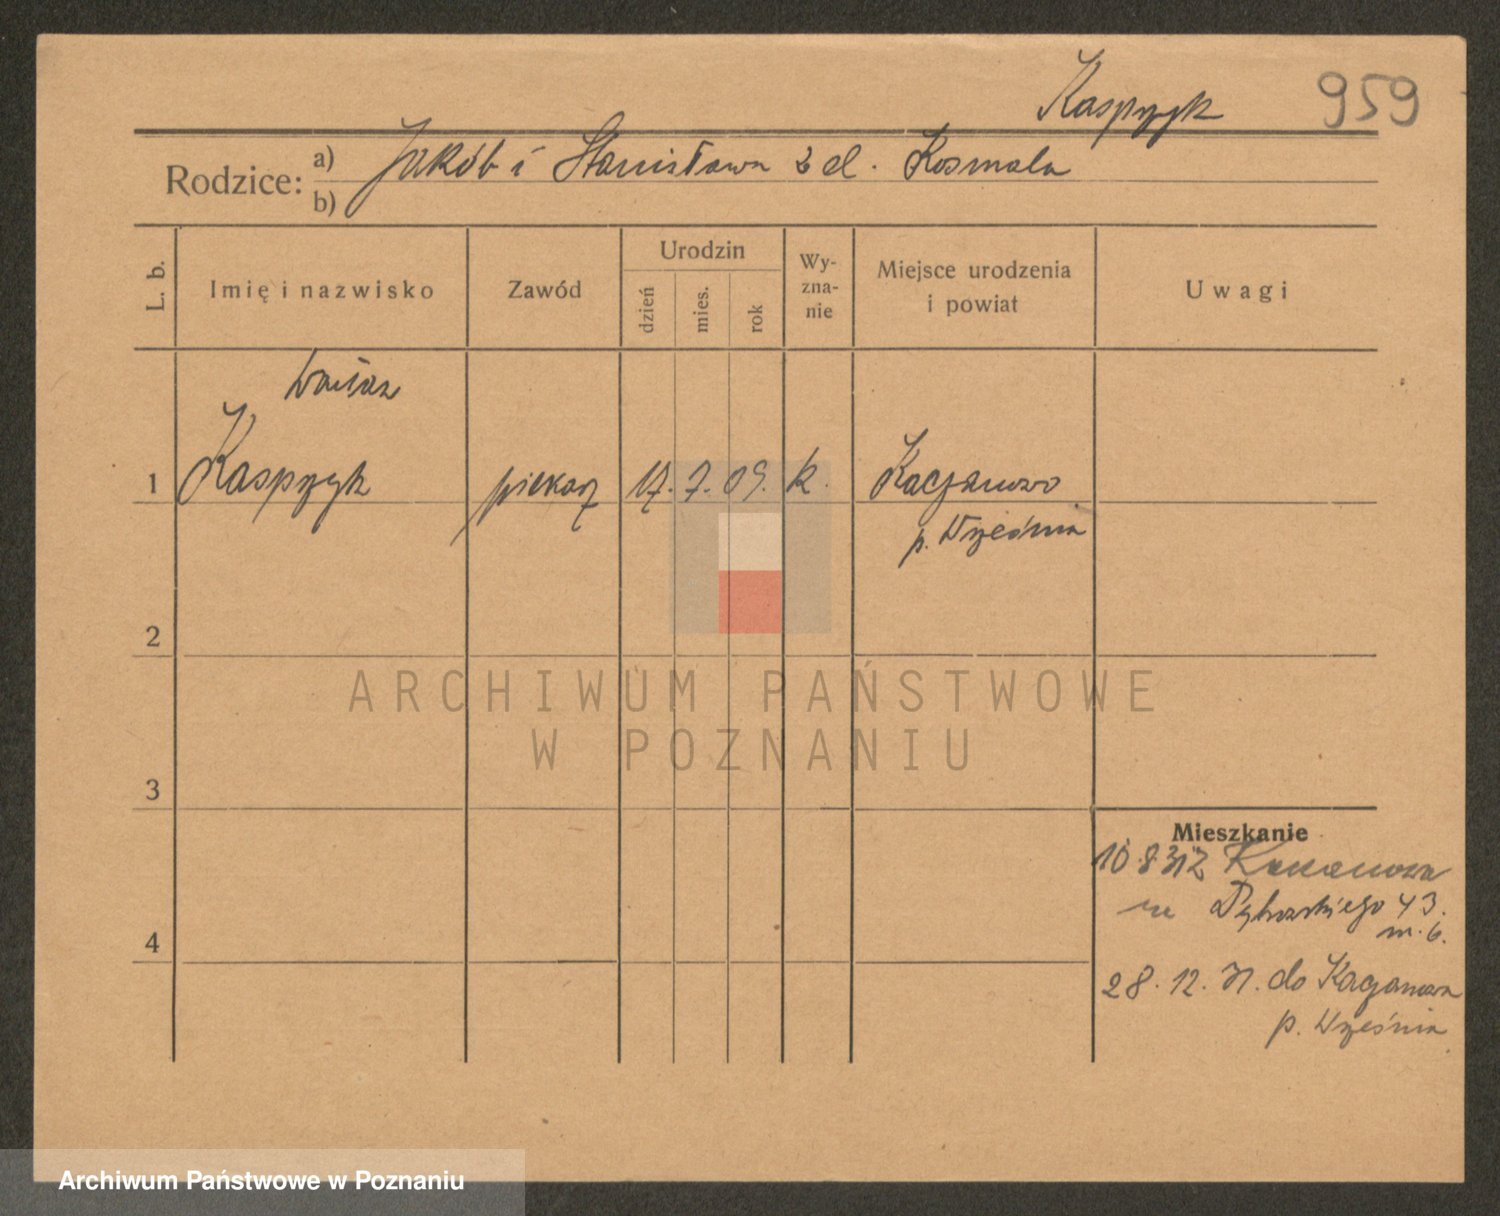 Kasprzyk 959
Rodzice: a) Jakób i Stanisława z d. Kosmala
b)
L. b. Imię i nazwisko Zawód Urodzin dzień mies. rok Wy-zna-nie Miejsce urodzenia i powiat Uwagi
Wacław
1 Kasprzyk piekarz 17. 7. 09. k. Kaczanowo
p. Września
2
ARCHIWUM PAŃSTWOWE
W POZNANIU
3
Mieszkanie
10.8.31 z Kaczanowa
43.
m. 6.
4
28. 12. 31. do Kaczanowa
p. Września
Archiwum Państwowe w Poznaniu